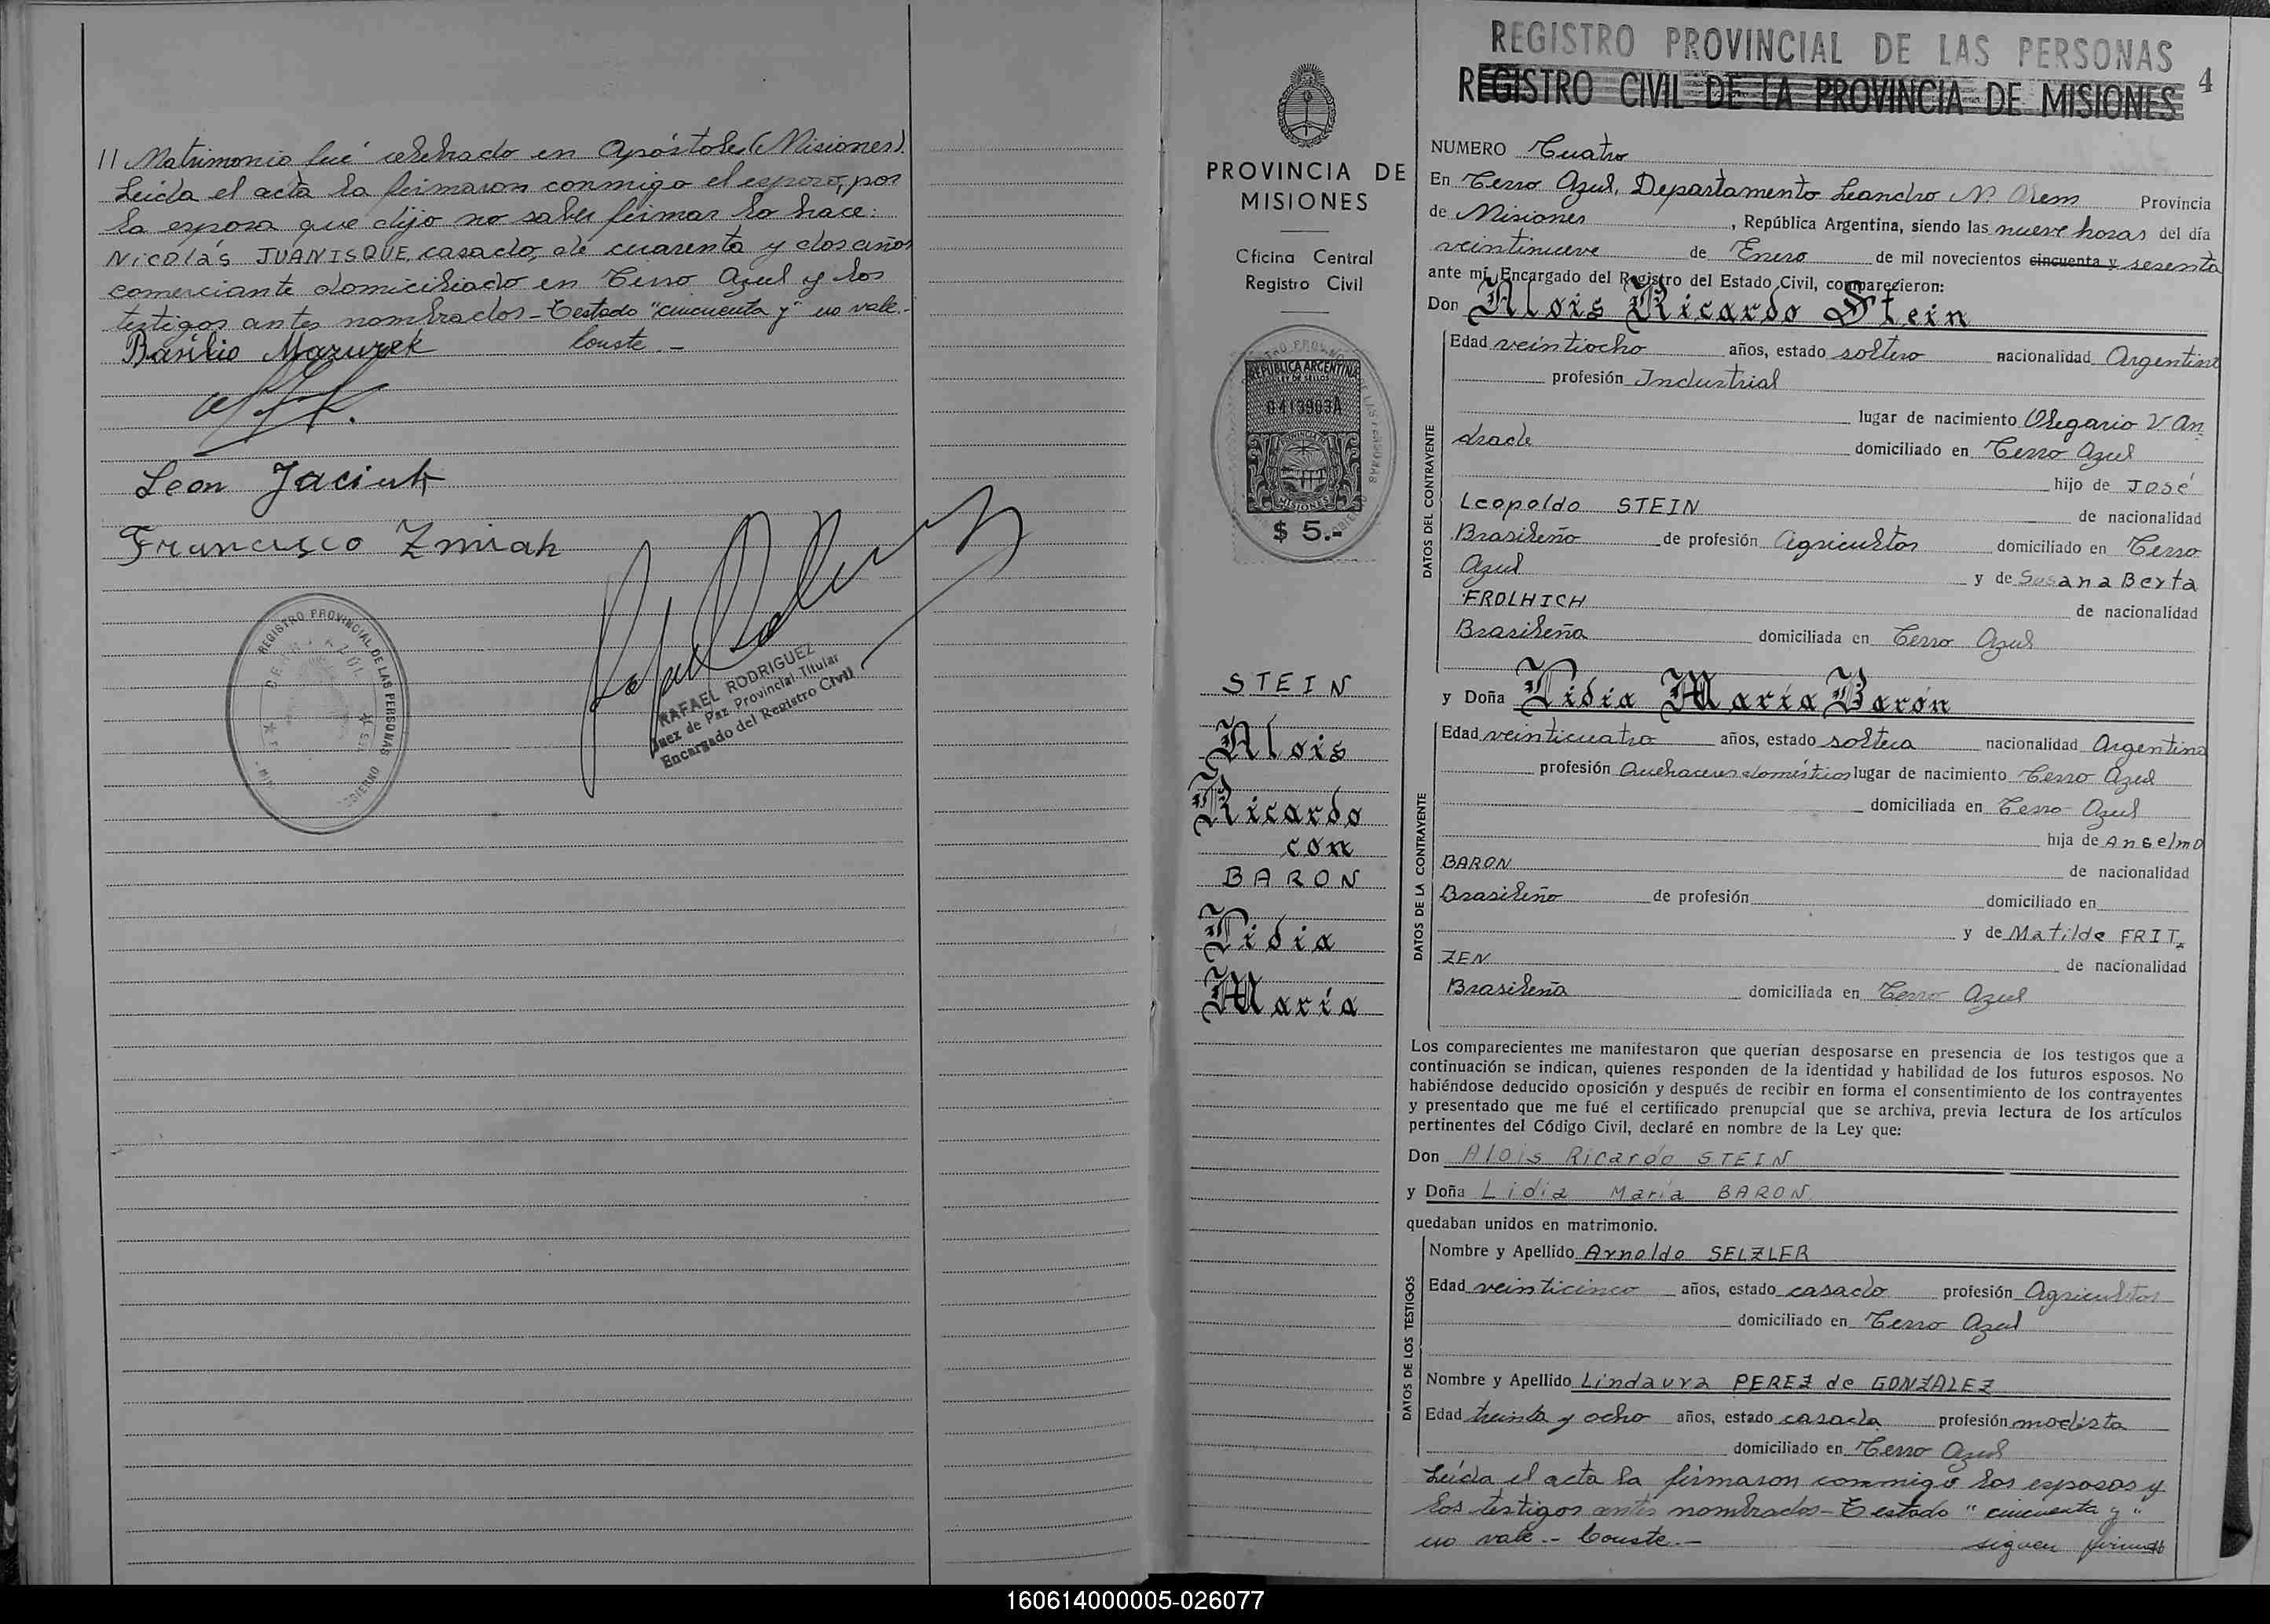 // Matrimonio fué celebrado en Apóstoles (Misiones).
Leída el acta la firmaron conmigo el esposo, por
la esposa que dijo no saber firmar lo hace:
Nicolás JUANISQUE, casado, de cuarenta y dos años
comerciante domiciliado en Cerro Azul y los
testigos antes nombrados - Testado "cincuenta y" no vale.-
Basilio Mazurek Conste.-
Leon Jaciuk
Francisco Zmiah
REGISTRO PROVINCIAL DE LAS PERSONAS
CERRO AZUL
RAFAEL RODRIGUEZ
Juez de Paz Provincial Titular
Encargado del Registro Civil
PROVINCIA DE
MISIONES
Oficina Central
Registro Civil
REPUBLICA ARGENTINA
LEY DE SELLOS
0413903A
PROVINCIA DE
MISIONES
$ 5.-
STEIN
Alois
Ricardo
con
BARON
Lidia
María
REGISTRO PROVINCIAL DE LAS PERSONAS
REGISTRO CIVIL DE LA PROVINCIA DE MISIONES
4
NUMERO Cuatro
En Cerro Azul, Departamento Leandro N. Alem Provincia
de Misiones, República Argentina, siendo las nueve horas del día
veintinueve de Enero de mil novecientos cincuenta y sesenta
ante mí, Encargado del Registro del Estado Civil, comparecieron:
Don Alois Ricardo Stein
DATOS DEL CONTRAYENTE
Edad veintiocho años, estado soltero nacionalidad Argentino
profesión Industrial
lugar de nacimiento Olegario V. An-
drade domiciliado en Cerro Azul
hijo de José
Leopoldo STEIN de nacionalidad
Brasileño de profesión Agricultor domiciliado en Cerro
Azul y de Susana Berta
FROLHICH de nacionalidad
Brasileña domiciliada en Cerro Azul
y Doña Lidia María Barón
DATOS DE LA CONTRAYENTE
Edad veinticuatro años, estado soltera nacionalidad Argentina
profesión Quehaceres domésticos lugar de nacimiento Cerro Azul
domiciliada en Cerro Azul
hija de Anselmo
BARON de nacionalidad
Brasileño de profesión domiciliado en
y de Matilde FRIT-
ZEN de nacionalidad
Brasileña domiciliada en Cerro Azul
Los comparecientes me manifestaron que querían desposarse en presencia de los testigos que a
continuación se indican, quienes responden de la identidad y habilidad de los futuros esposos. No
habiéndose deducido oposición y después de recibir en forma el consentimiento de los contrayentes
y presentado que me fué el certificado prenupcial que se archiva, previa lectura de los artículos
pertinentes del Código Civil, declaré en nombre de la Ley que:
Don Alois Ricardo STEIN
y Doña Lidia María BARON
quedaban unidos en matrimonio.
DATOS DE LOS TESTIGOS
Nombre y Apellido Arnoldo SELZLER
Edad veinticinco años, estado casado profesión Agricultor
domiciliado en Cerro Azul
Nombre y Apellido Lindaura PEREZ de GONZALEZ
Edad treinta y ocho años, estado casada profesión modista
domiciliado en Cerro Azul
Leída el acta la firmaron conmigo los esposos y
los testigos antes nombrados - Testado "cincuenta y"
no vale.- Conste.- siguen firmas
160614000005-026077